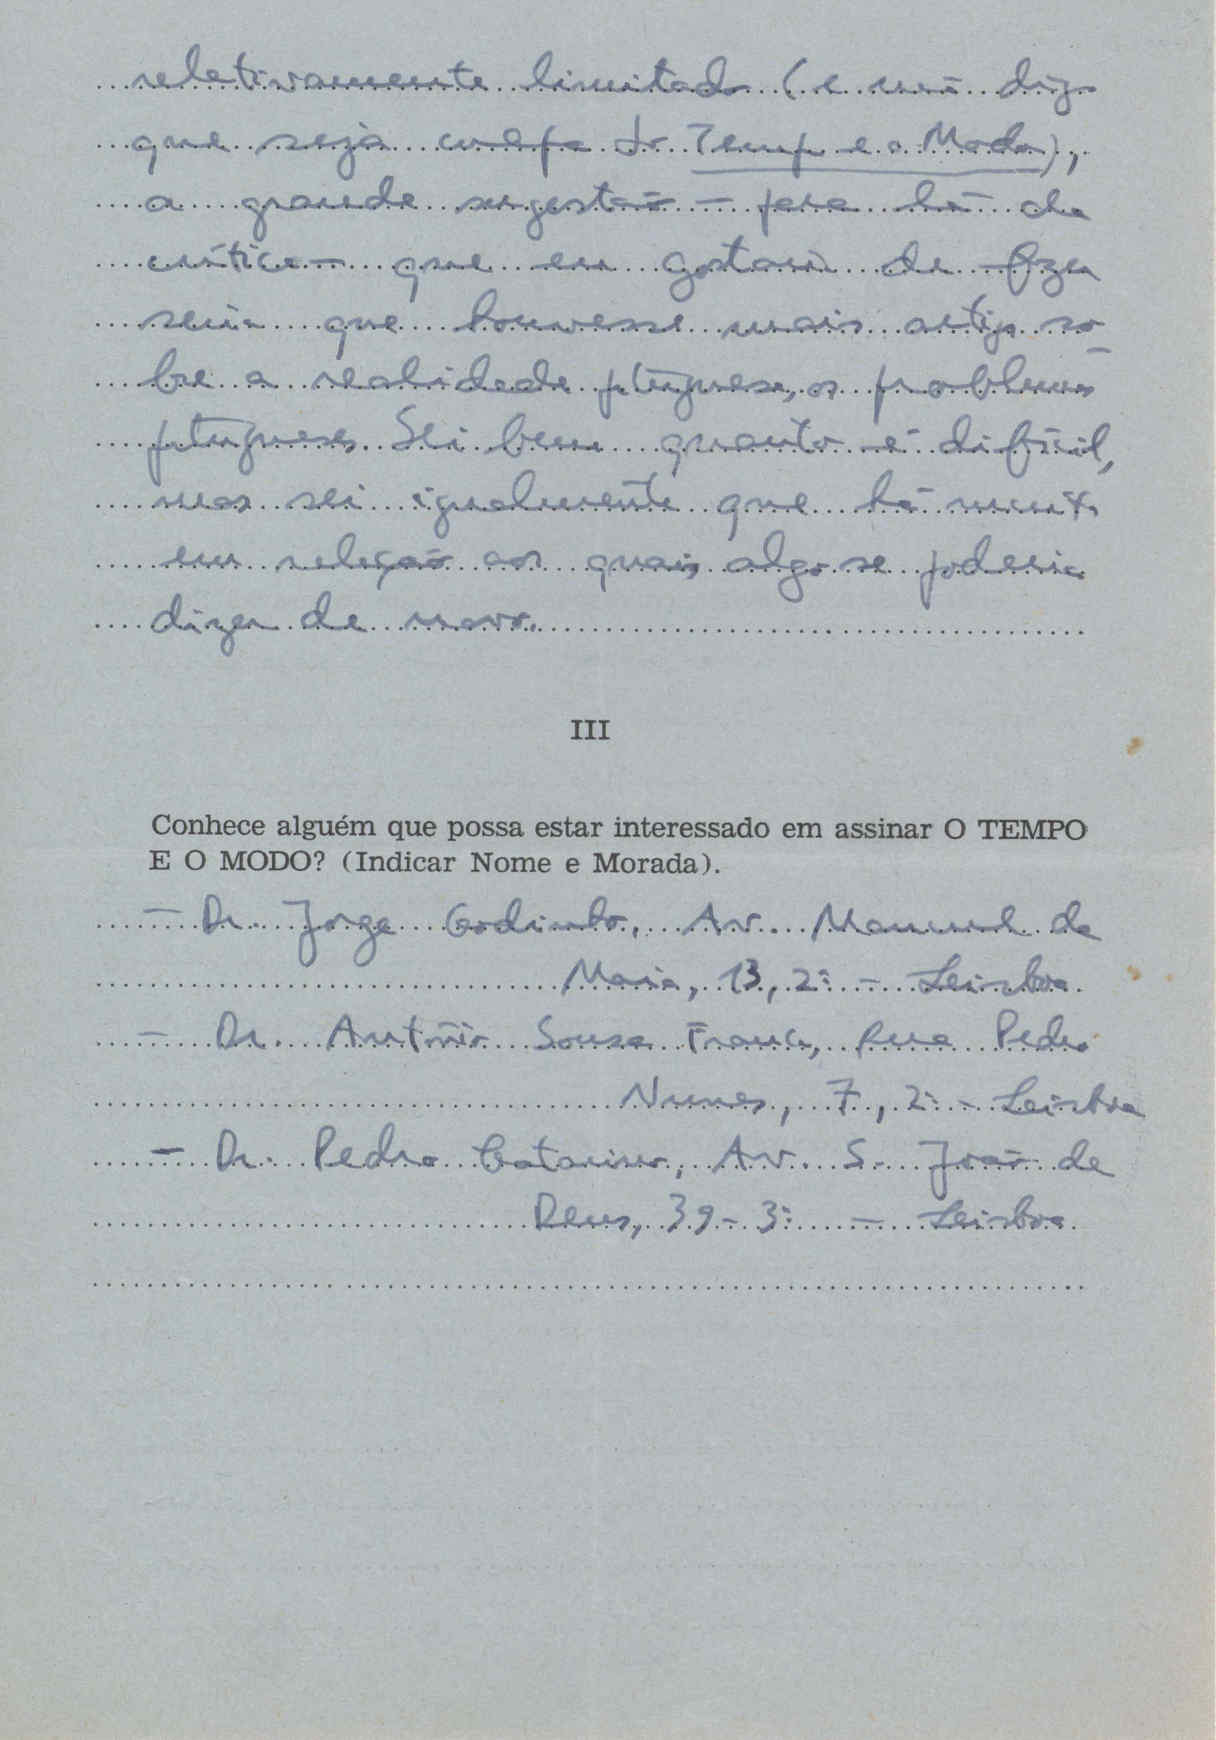 relativamente limitado (e não digo
que seja culpa do Tempo e o Modo),
a grande sugestão — para lá da
crítica — que eu gostaria de fazer
seria que houvesse mais artigos so-
bre a realidade portuguesa, os problemas
portugueses. Sei bem quanto é difícil,
mas sei igualmente que há muitos
em relação aos quais algo se poderia
dizer de novo.
III
Conhece alguém que possa estar interessado em assinar O TEMPO
E O MODO? (Indicar Nome e Morada).
— Dr. Jorge Godinho, Av. Manuel da
Maia, 13, 2º — Lisboa
— Dr. António Sousa Franco, Rua Pedro
Nunes, 7, 2º — Lisboa
— Dr. Pedro Catarino, Av. S. João de
Deus, 39 - 3º — Lisboa